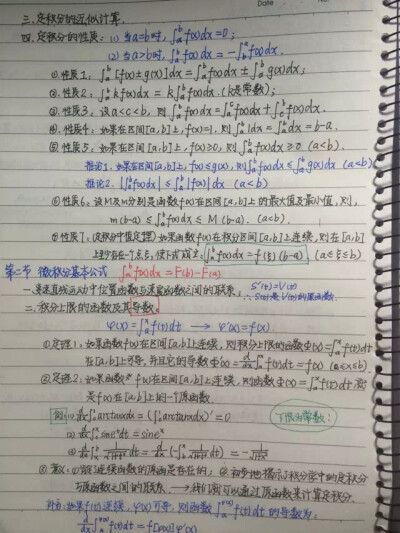 Date
三.定积分的近似计算.
四.定积分的性质: (1) 当a=b时, ∫ₐᵇ f(x)dx=0;
(2) 当a>b时, ∫ₐᵇ f(x)dx = -∫ᵇₐ f(x)dx.
①.性质1: ∫ₐᵇ [f(x)±g(x)]dx = ∫ₐᵇ f(x)dx ± ∫ₐᵇ g(x)dx;
②.性质2: ∫ₐᵇ kf(x)dx = k∫ₐᵇ f(x)dx. (k是常数);
③.性质3: 设a<c<b, 则∫ₐᵇ f(x)dx = ∫ₐᶜ f(x)dx + ∫ᶜᵇ f(x)dx.
④.性质4: 如果在区间[a,b]上, f(x)=1, 则∫ₐᵇ 1dx = ∫ₐᵇ dx = b-a.
⑤.性质5: 如果在区间[a,b]上, f(x)≥0, 则∫ₐᵇ f(x)dx≥0. (a<b)
推论1. 如果在区间[a,b]上, f(x)≤g(x), 则∫ₐᵇ f(x)dx ≤ ∫ₐᵇ g(x)dx (a<b)
推论2. |∫ₐᵇ f(x)dx| ≤ ∫ₐᵇ |f(x)|dx (a<b)
⑥性质6: 设M及m分别是函数f(x)在区间[a,b]上的最大值及最小值, 则,
m(b-a) ≤ ∫ₐᵇ f(x)dx ≤ M(b-a). (a<b).
⑦性质7: (定积分中值定理) 如果函数f(x)在积分区间[a,b]上连续, 则在[a,b]
上至少存在一个点ξ, 使下式成立: ∫ₐᵇ f(x)dx = f(ξ)(b-a) (a≤ξ≤b)
第二节 微积分基本公式 ∫ₐᵇ f(x)dx = F(b)-F(a)
一.变速直线运动中位置函数与速度函数之间的联系: S'(t)=V(t)
∴S(t)是V(t)的原函数.
二.积分上限的函数及其导数.
φ(x) = ∫ₐˣ f(t)dt → φ'(x)=f(x).
①定理1: 如果函数f(x)在区间[a,b]上连续, 则积分上限的函数Φ(x)=∫ₐˣ f(t)dt
在[a,b]上可导, 并且它的导数Φ'(x)=d/dx ∫ₐˣ f(t)dt = f(x) (a≤x≤b).
②定理2: 如果函数f(x)在区间[a,b]上连续, 则函数Φ(x)=∫ₐˣ f(t)dt
是f(x)在[a,b]上的一个原函数.
例: (1) d/dx ∫ₐᵇ arctanxdx = (∫ₐᵇ arctanxdx)' = 0 下限为常数:
③意义: ①肯定了连续函数的原函数是存在的; ②初步地揭示了积分学中的定积分
与原函数之间的联系. → 我们就可以通过原函数来计算定积分.
补充: 如果f(t)连续, φ(x)可导, 则函数∫ₐ^φ(x) f(t)dt 的导数为:
d/dx ∫ₐ^φ(x) f(t)dt = f[φ(x)]φ'(x)